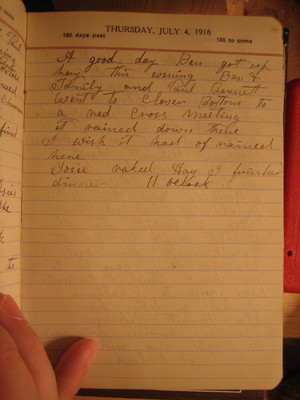 THURSDAY, JULY 4, 1918
185 days past
180 to come
A good day Ben got up
hay this evening Ben &
Family and
went to Clover Bottons to
a Red Cross meeting
it rained down there
I wish it had of rained
here
Josie raked Hay I
dinner 11 oclock